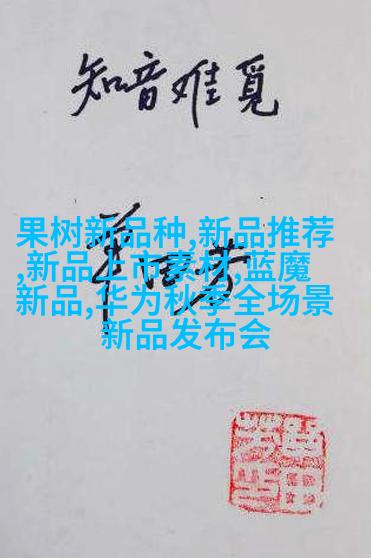 知音难觅
果树新品种,新品推荐
,新品上市素材,蓝魔
新品,华为秋季全场景
新品发布会